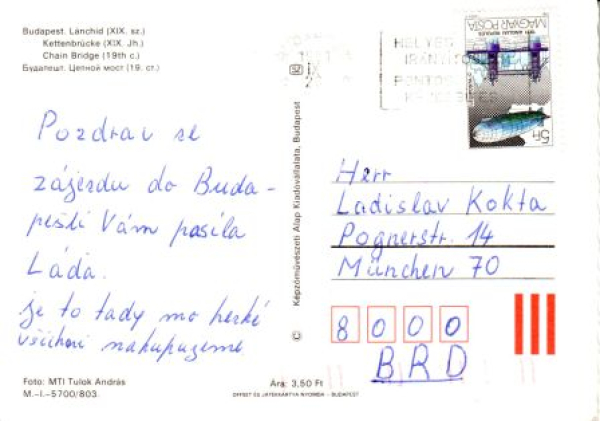 Budapest. Lánchíd (XIX. sz.)
Kettenbrücke (XIX. Jh.)
Chain Bridge (19th c.)
Будапешт. Цепной мост (19. ст.)
HELYES
PONTOS
MAGYAR POSTA
5Ft
Pozdrav ze
zájezdu do Buda-
pešti Vám posílá
Láda.
je to tady mo hezké
všichni nakupujeme
© Képzőművészeti Alap Kiadóvállalata, Budapest
Herr
Ladislav Kokta
Pognerstr. 14
München 70
8000
BRD
Foto: MTI Tulok András
M.-I.-5700/803.
Ára: 3,50 Ft
OFFSET ÉS JÁTÉKKÁRTYA NYOMDA - BUDAPEST